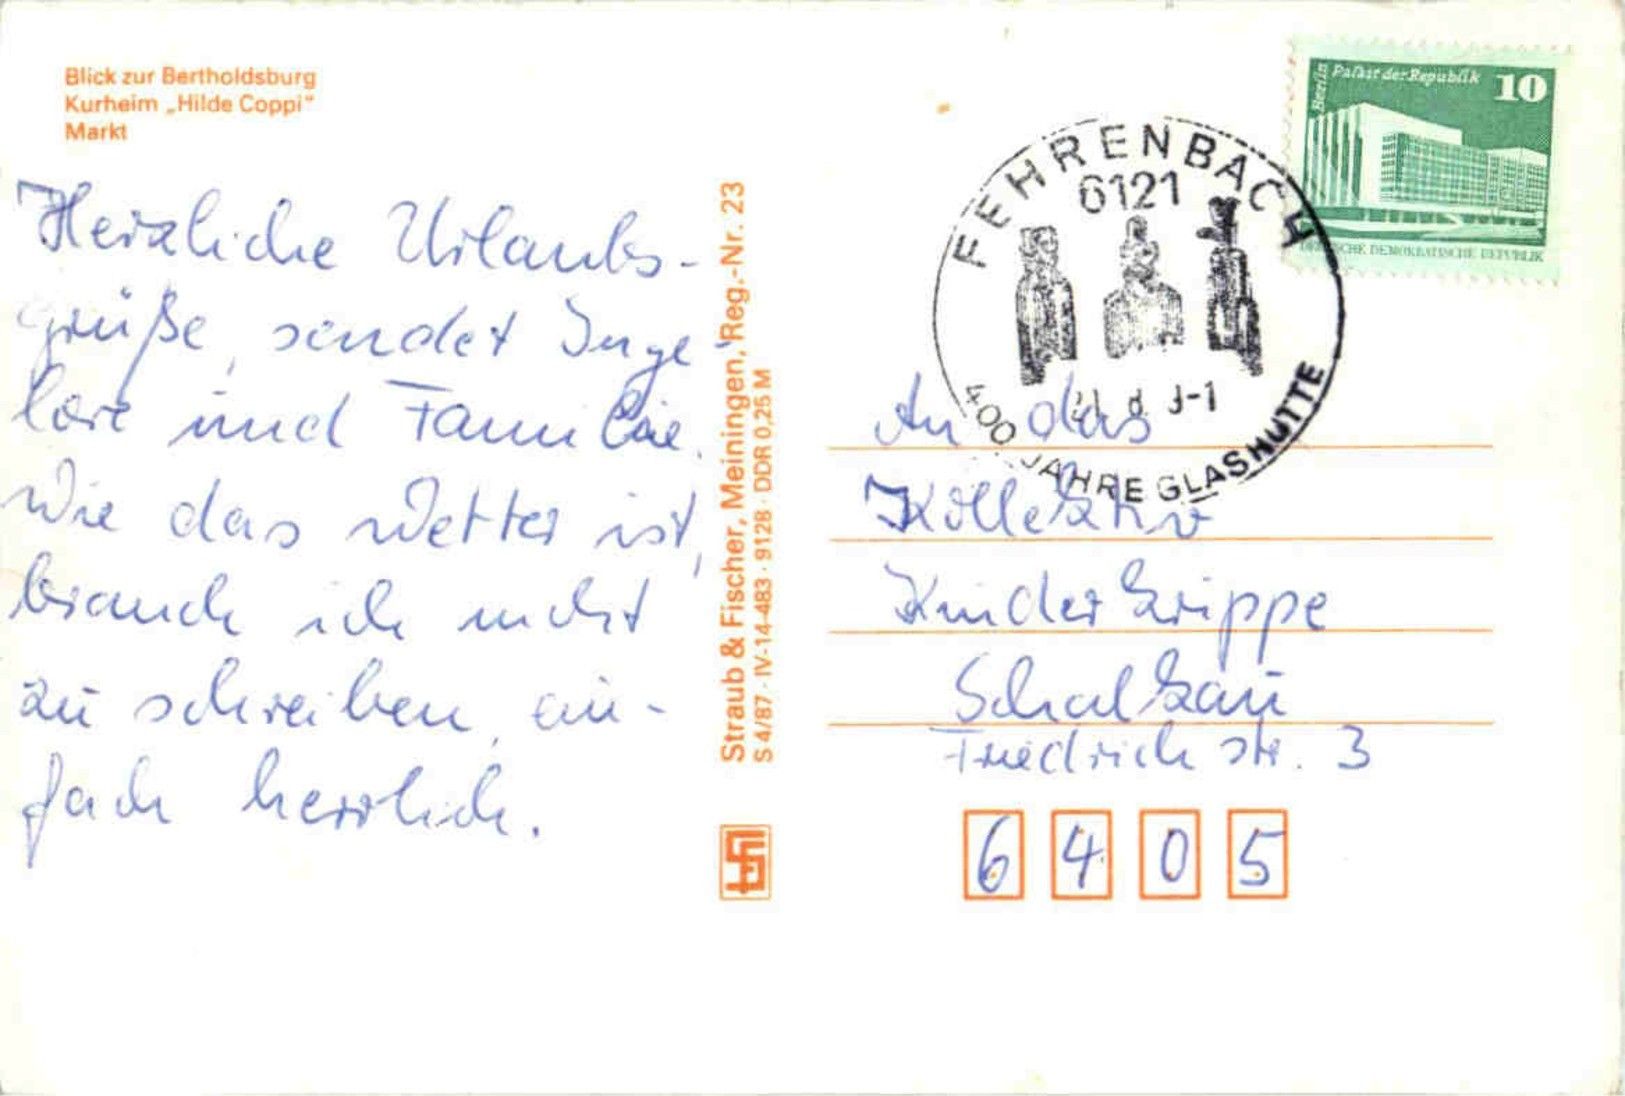 Blick zur Bertholdsburg
Kurheim „Hilde Coppi"
Markt
Herzliche Urlaubs-
grüße, sendet Inge-
lore und Familie.
Wie das Wetter ist,
brauch ich nicht
zu schreiben, ein-
fach herrlich.
Straub & Fischer, Meiningen, Reg.-Nr. 23
S 4/87 · IV-14-483 · 9128 · DDR 0,25 M
Berlin
Palast der Republik
10
DEUTSCHE DEMOKRATISCHE REPUBLIK
FEHRENBACH
6121
400 JAHRE GLASHÜTTE
An das
Kollektiv
Kinderkrippe
Schalkau
Friedrichstr. 3
6 4 0 5